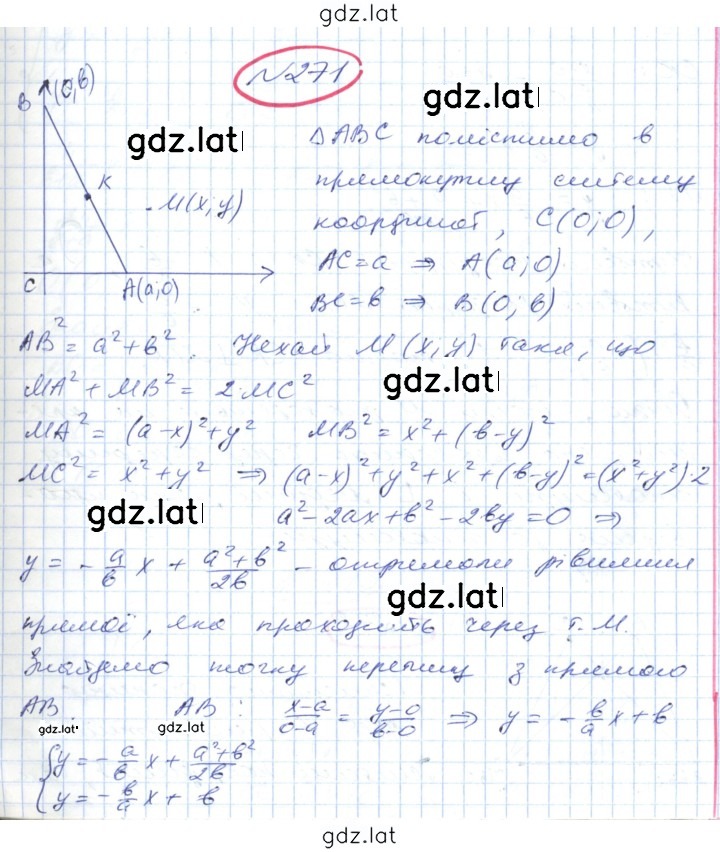 gdz.lat
№271
B (0; в)
gdz.lat
gdz.lat
ΔABC помістимо в
K
прямокутну систему
M(x; y)
координат, C(0; 0),
C
A(a; 0)
AC = a ⇒ A(a; 0)
BC = в ⇒ B(0; в)
AB² = a² + в². Нехай M(x; y) така, що
MA² + MB² = 2·MC²
gdz.lat
MA² = (a-x)² + y² MB² = x² + (в-y)²
MC² = x² + y² ⇒ (a-x)² + y² + x² + (в-y)² = (x² + y²)·2
gdz.lat
a² - 2ax + в² - 2вy = 0 ⇒
y = -a/в x + (a²+в²)/2в - отримали рівняння
gdz.lat
прямої, яка проходить через т. M.
Знайдемо точку перетину з прямою
AB. AB: (x-a)/(0-a) = (y-0)/(в-0) ⇒ y = -в/a x + в
gdz.lat
gdz.lat
{ y = -a/в x + (a²+в²)/2в
y = -в/a x + в
gdz.lat